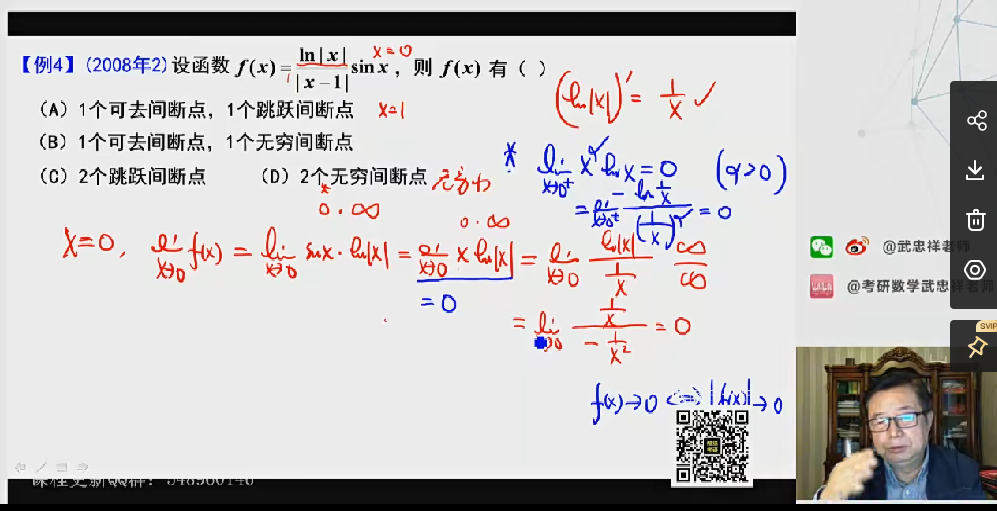 【例4】(2008年2) 设函数 f(x) = ln|x| / |x−1| sin x, 则 f(x) 有 ( )
x=0
(A) 1个可去间断点, 1个跳跃间断点 x=1
(B) 1个可去间断点, 1个无穷间断点
(C) 2个跳跃间断点 (D) 2个无穷间断点
(ln|x|)' = 1/x ✓
* lim x→0⁺ x^α ln x = 0 (α>0)
= lim x→0⁺ −ln 1/x / (1/x)^α = 0
* 0·∞
0·∞
x=0, lim x→0 f(x) = lim x→0 sin x · ln|x| = lim x→0 x ln|x| = lim x→0 ln|x| / 1/x ∞/∞
= 0
= lim x→0 1/x / −1/x² = 0
f(x)→0 ⇔ |f(x)|→0
@武忠祥老师
@考研数学武忠祥老师
SVIP